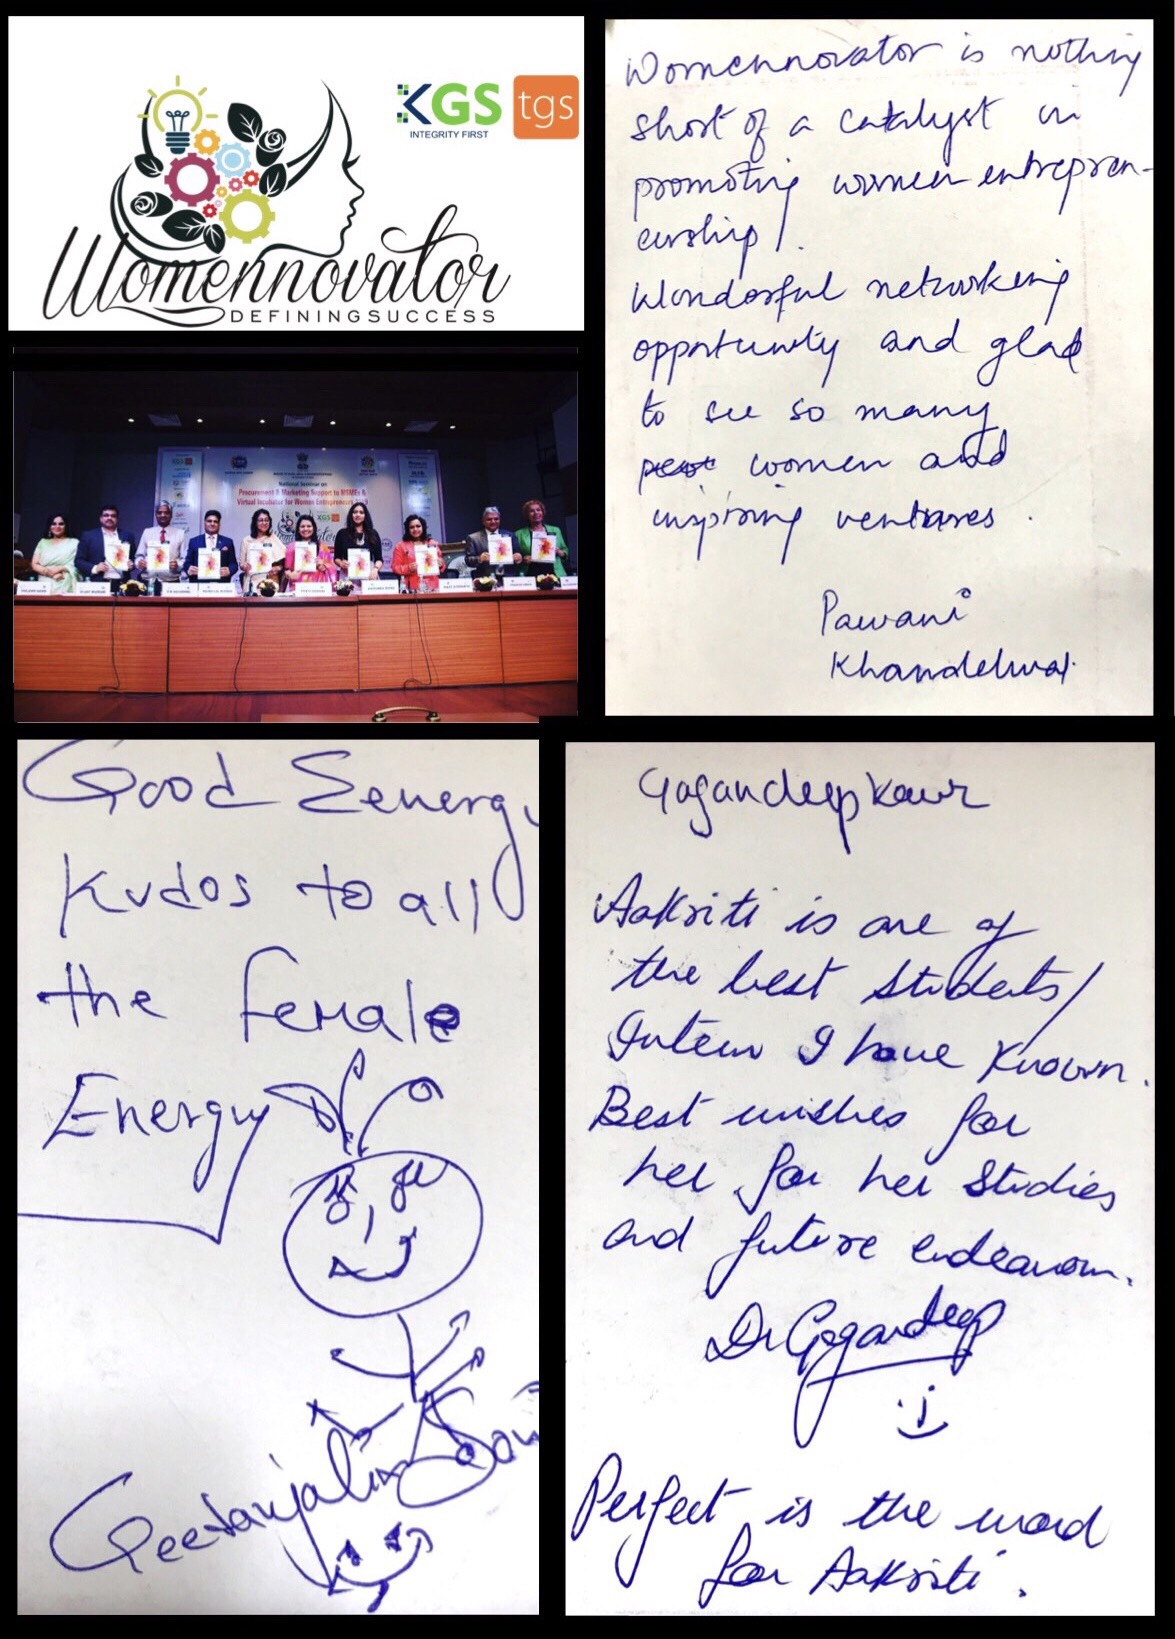 KGS
INTEGRITY FIRST
tgs
Womennovator
DEFINING SUCCESS
National Seminar on
Procurement & Marketing Support to MSMEs &
Virtual Incubator for Women Entrepreneurs
Womennovator is nothing
short of a catalyst in
promoting women entrepren-
eurship!.
Wonderful networking
opportunity and glad
to see so many
women and
inspiring ventures.
Pawani
Khandelwal
Good Eenergy
Kudos to all
the Female
Energy
Geetanjali
Gagandeep Kaur
Aakriti is one of
the best students/
Intern I have known.
Best wishes for
her for her studies
and future endeavour.
Dr Gagandeep
Perfect is the word
for Aakriti.